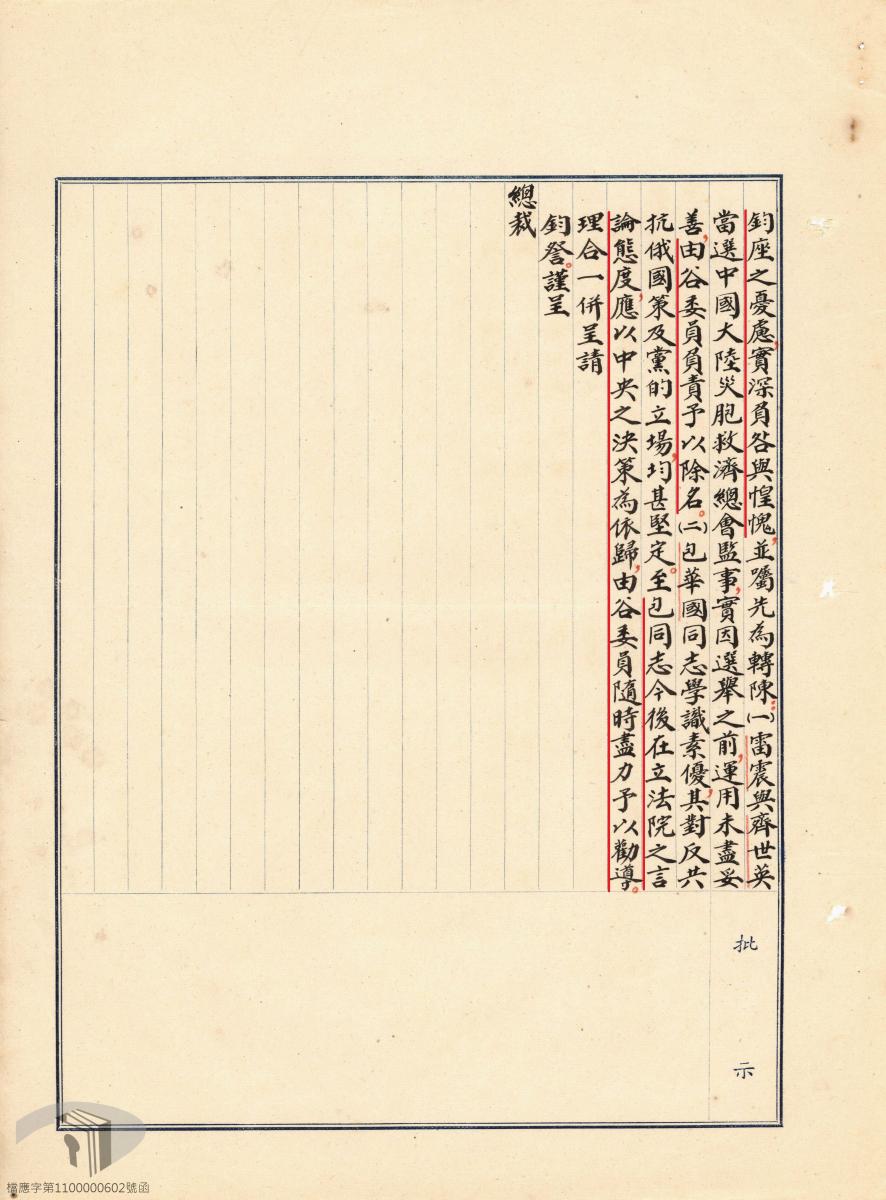 鈞座之憂慮，實深負咎與惶愧，並囑先為轉陳：(一)雷震與齊世英
當選中國大陸災胞救濟總會監事，實因選舉之前，運用未盡妥
善，由谷委員負責予以除名。(二)包華國同志學識素優，其對反共
抗俄國策及黨的立場，均甚堅定。至包同志今後在立法院之言
論態度，應以中央之決策為依歸，由谷委員隨時盡力予以勸導。
理合一併呈請
鈞詧。謹呈
總裁
批示
檔應字第1100000602號函